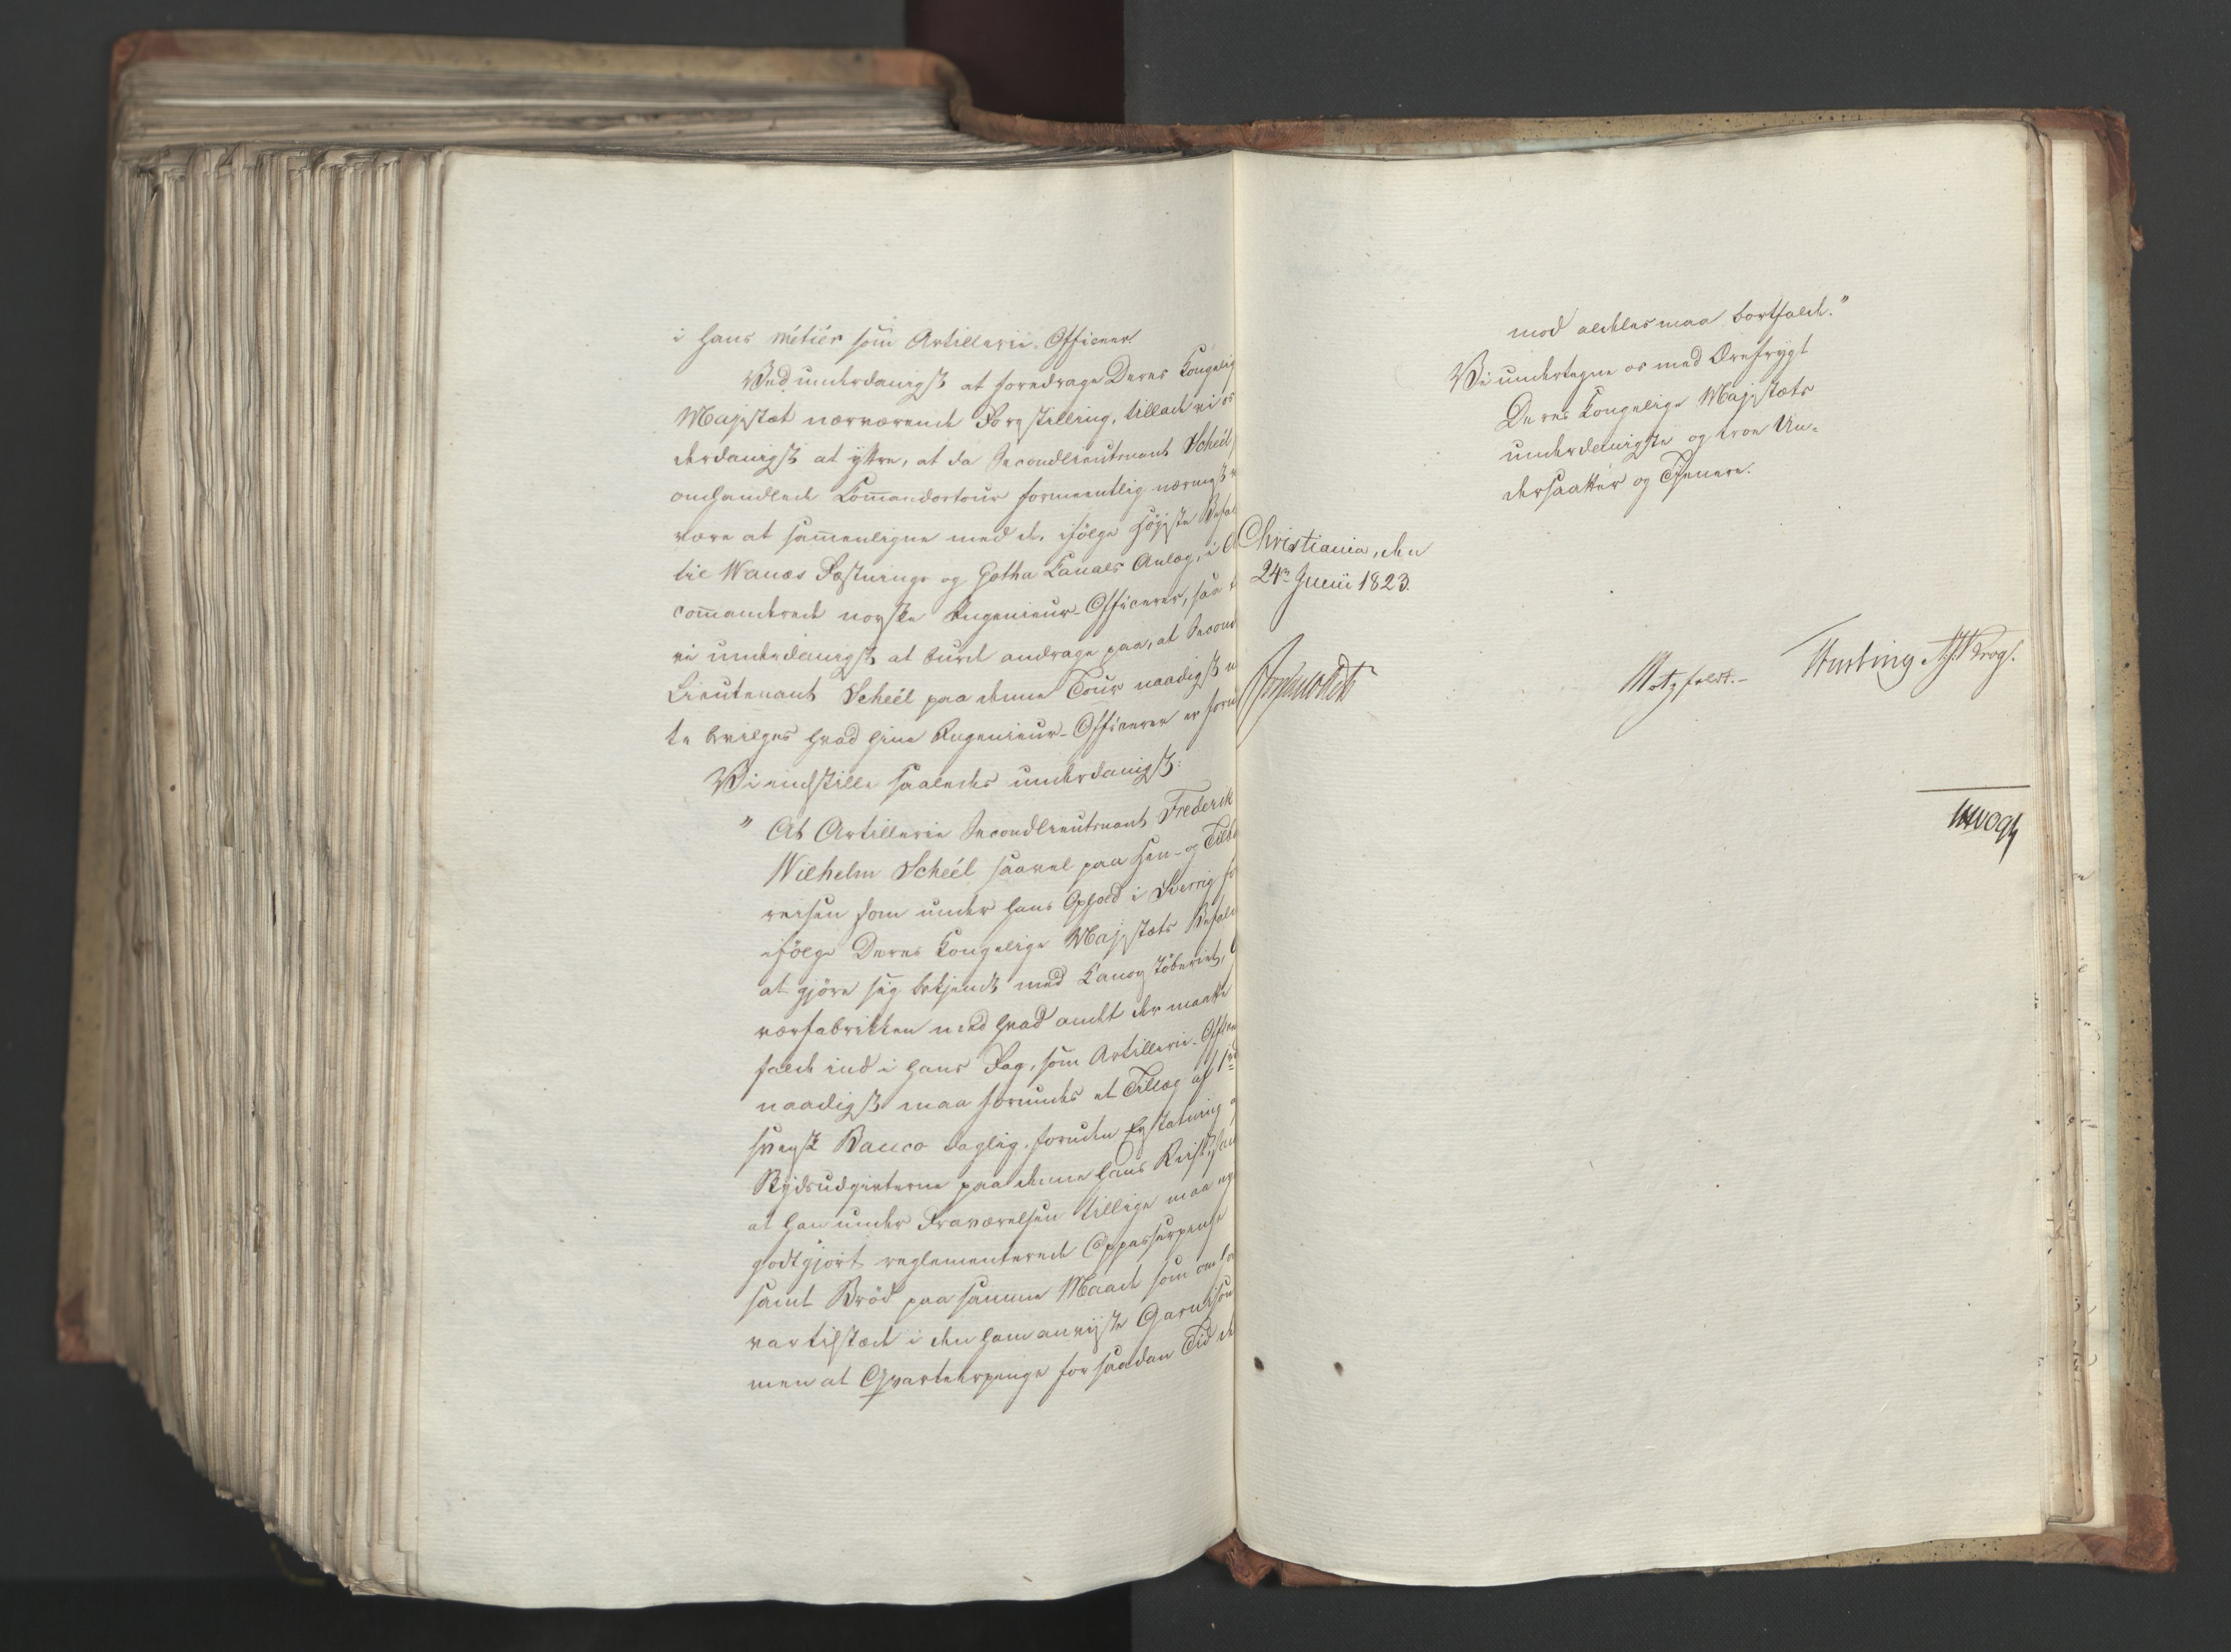 i hans métièr som Artillerii-Officeer.
Ved underdanigst at foredrage Deres Kongelig
Majestæt nærværende Forestilling, tillade vi os
derdanigst at yttre, at da Secondlieutnant Scheél,
omhandlede Commandortour formeentlig nærmest
være at sammenligne med de, ifölge höieste Befal
til Wanæs Fæstnings og Gotha Kanals Anlæg, i
commanderede norske Ingenieur-Officerer, saa
vi underdanigst at burde andrage paa, at Second
Lieutenant Scheél paa denne Tour naadigst
te bevilges hvad hine Ingenieur-Officerer er forun
Vi indstille saaledes underdanigst:
" At Artillerie Secondlieutnant Frederik
Wilhelm Scheél saavel paa Hen- og Tilba
reisen som under hans Ophold i Sverrig for
ifölge Deres Kongelige Majestæts Befaling
at gjöre sig bekjendt med Kanonstöberiet,
værfabrikken med hvad andet der maatte
falde ind i hans Fag, som Artillerie-Officer
naadigst maa forundes et Tillæg af 1rd
svensk Banco daglig, foruden Erstatning
Skydsudgivterne paa denne hans Reise, sam
at han under Fraværelsen tillige maa
godtgjort reglementerede Oppasserpenge
samt Bröd paa samme Maade som om ha
var tilstæde i den ham anviiste Garnison
men at Qvarteerpenge for saadan Tid de
mod aldeles maa bortfalde."
Vi undertegne os med Ærefrygt
Deres Kongelige Majestæts
underdanigste og troe Un-
dersaatter og Tjenere.
Christiania, den
24de Junii 1823.
Motzfeldt.-